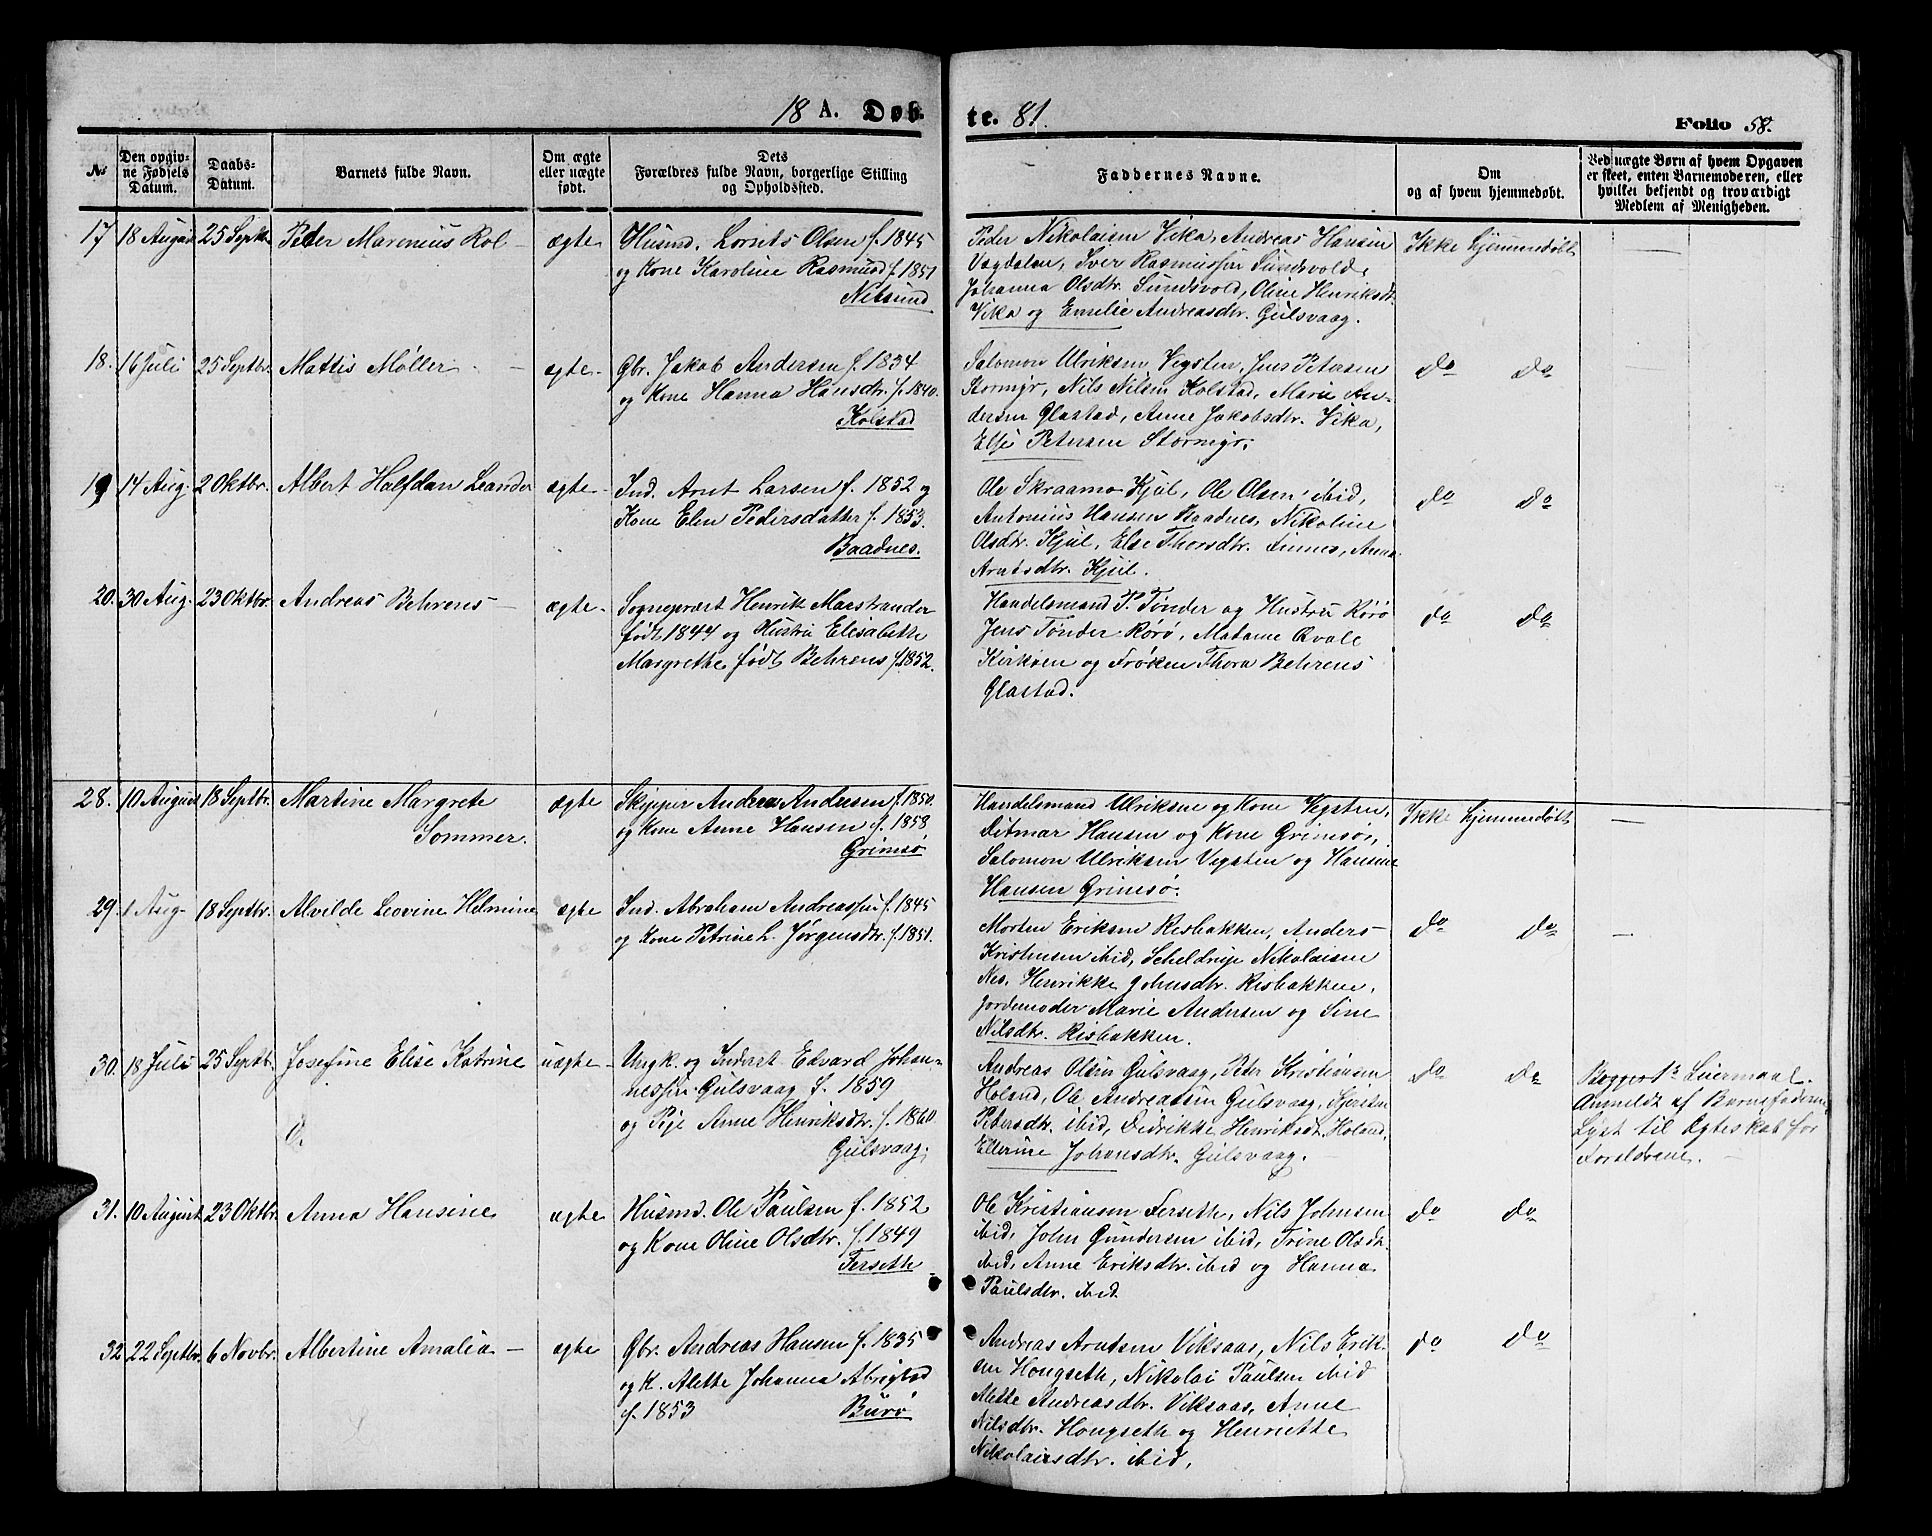 18 A. Døb-
te. 81.
Folio 58.
No
Den opgiv-
ne Fødsels
Datum.
Daabs-
Datum.
Barnets fulde Navn.
Om ægte
eller uægte
født.
Dets
Forældres fulde Navn, borgerlige Stilling
og Opholdssted.
Faddernes Navne.
Om
og af hvem hjemmedøbt.
Ved uægte Børn af hvem Opgaven
er skeet, enten Barnemoderen, eller
hvilket bekjendt og troværdigt
Medlem af Menigheden.
17 18 August 25 Septbr. Peder Marenius Rol — ægte
Husmd. Lorids Olsen f. 1845
og Kone Karoline Rasmusd f. 1851
Peder Nikolaisen Vika, Andreas Hansen
Vegdalen, Iver Rasmussen Sundsvold,
Johanna Olsdtr. Sundsvold, Oline Henriksdt.
Vika og Emelie Andreasdtr. Gulsvaag.
Ikke hjemmedøbt —
18. 16 Juli 25 Septbr. Mattis Møller — ægte
Gbr. Jakob Andersen f. 1834
og Kone Hanna Hansdtr. f. 1840.
Kolstad
Salomon Ulriksen Vegsten, Jens Petersen
Stormyr, Nils Nilsen Kolstad, Marie An-
dersen Glastad, Anne Jakobsdtr. Vika,
Else Petersen Stormyr.
do do
19 14 Aug. 2 Oktbr. Albert Halfdan Leander ægte
Ind. Arnt Larsen f. 1852 og
Kone Elen Pedersdatter f. 1853.
Baadnes.
Ole Skraamo Kjul, Ole Olsen ibid,
Antonius Hansen Baadnes, Nikoline
Olsdtr. Kjul, Else Thorsdtr. Finnes, Anna
Arntsdtr. Kjul.
do do
20. 30 Aug. 23 Oktbr. Andreas Behrens — ægte
Sognepræst Henrik Marstrander
født 1844 og Hustru Elisabeth
Margrethe født Behrens f. 1852.
Handelsmand P. Tønder og Hustru Rørø
Jens Tønder Rørø, Madame Qvale
Kirkøen og Frøken Thora Behrens
Glastad.
do do
28. 10 August 18 Septbr. Martine Margrete
Sommer. ægte
Skipper Andreas Andersen f. 1850.
og Kone Anne Hansen f. 1858
Grimsø
Handelsmand Ulriksen og Kone Vegsten,
Ditmar Hansen og Kone Grimsø,
Salomon Ulriksen Vegsten og Hansine
Hansen Grimsø.
Ikke hjemmedøbt —
29. 1 Aug. 18 Septbr. Alvilde Leovine Helmine ægte
Ind. Abraham Andreassen f. 1845
og Kone Petrine L. Jørgensdtr. f. 1851.
Morten Eriksen Risbakken, Anders
Kristensen ibid, Scheldrup Nikolaisen
Nes, Henrikke Johnsdtr. Risbakken,
Jordemoder Marie Andersen og Sine
Nilsdtr. Risbakken.
do do —
30. 18 Juli 25 Septbr. Josefine Elise Katrine uægte
Ungk. og Inderst Edvard Johan-
nessen Gulsvaag f. 1859
og Pige Anne Henriksdtr. f. 1860
Gulsvaag.
Andreas Olsen Gulsvaag, Peder Kristiansen
Holand, Ole Andreassen Gulsvaag, Kjersten
Pedersdtr. ibid, Didrikke Henriksdt. Holand,
Ellerine Johansdtr. Gulsvaag.
do do
Begges 1ste Leiermaal.
Anmeldt af Barnefaderen.
Lyst til Ægteskab for
Forældrene. —
31. 10 August 23 Oktbr. Anna Hansine ægte
Husmd. Ole Paulsen f. 1852
og Kone Oline Olsdtr. f. 1849
Forseth
Ole Kristiansen Forseth, Nils Johnsen
ibid, John Gundersen ibid, Trine Olsdt.
ibid, Anne Eriksdtr. ibid og Hanna
Paulsdtr. ibid.
do do
32 22 Septbr. 6 Novbr. Albertine Amalia — ægte
Gbr. Andreas Hansen f. 1835
og K. Alette Johanna Abrigtsd
f. 1853 Burø
Andreas Arntsen Viksaas, Nils Erik-
sen Hongseth, Nikolai Paulsen ibid
Mette Andreasdtr. Viksaas, Anne
Nilsdtr. Hongseth og Henriette
Nikolaisdtr. ibid.
do do